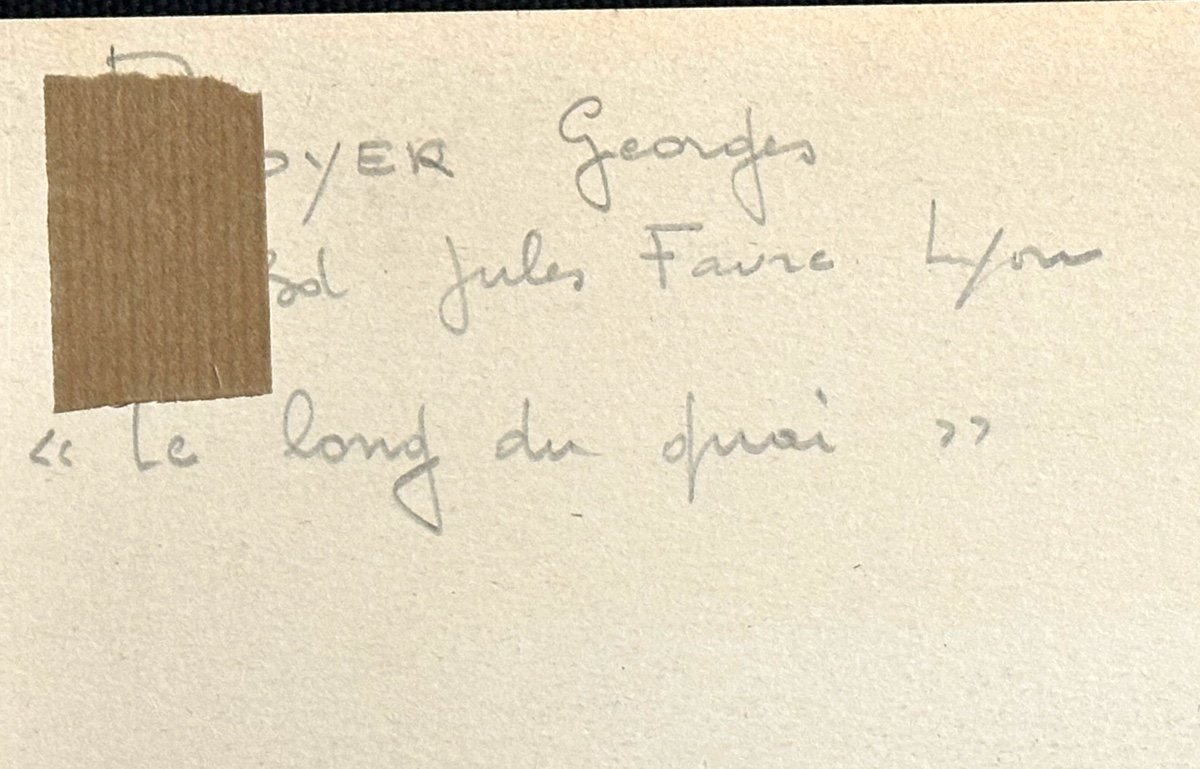 OYER Georges
Bd Jules Favre Lyon
« Le long du quai »